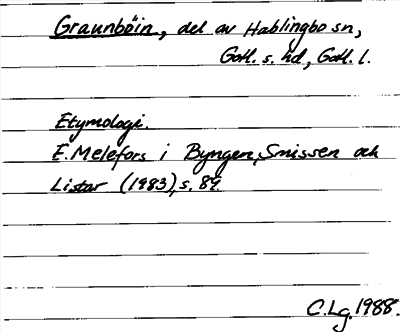 Graunböin, del av Hablingbo sn,
Gotl. s. hd, Gotl. l.
Etymologi.
E. Melefors i Byngen, Smissen och
Listar (1983), s. 89.
C.Lg. 1988.